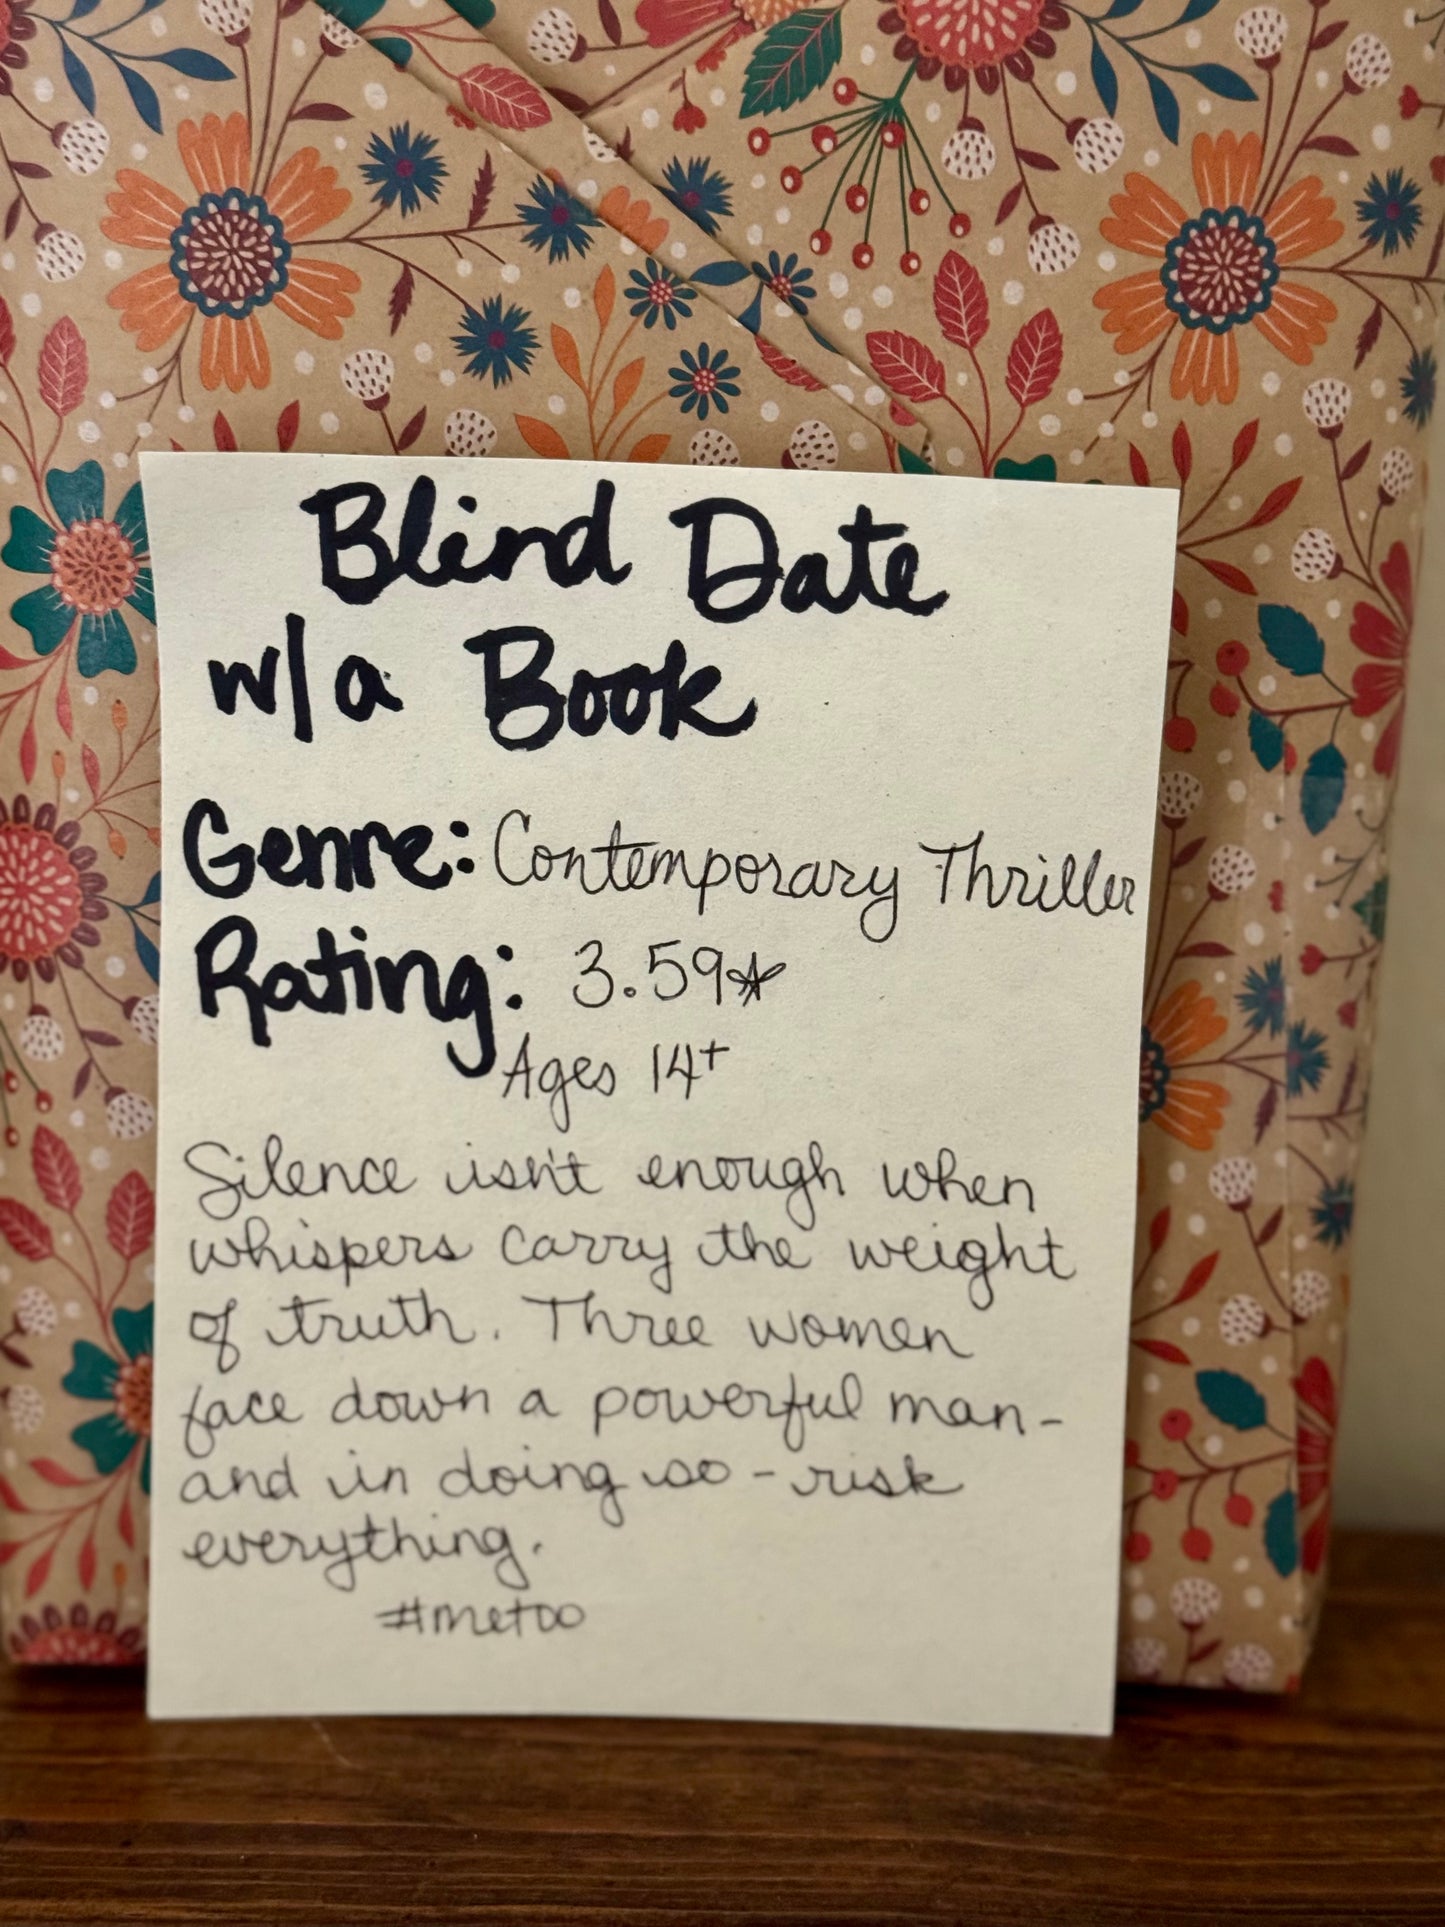 Blind Date
w/a Book
Genre: Contemporary Thriller
Rating: 3.59☆
Ages 14+
Silence isn't enough when
whispers carry the weight
of truth. Three women
face down a powerful man-
and in doing so - risk
everything.
#metoo